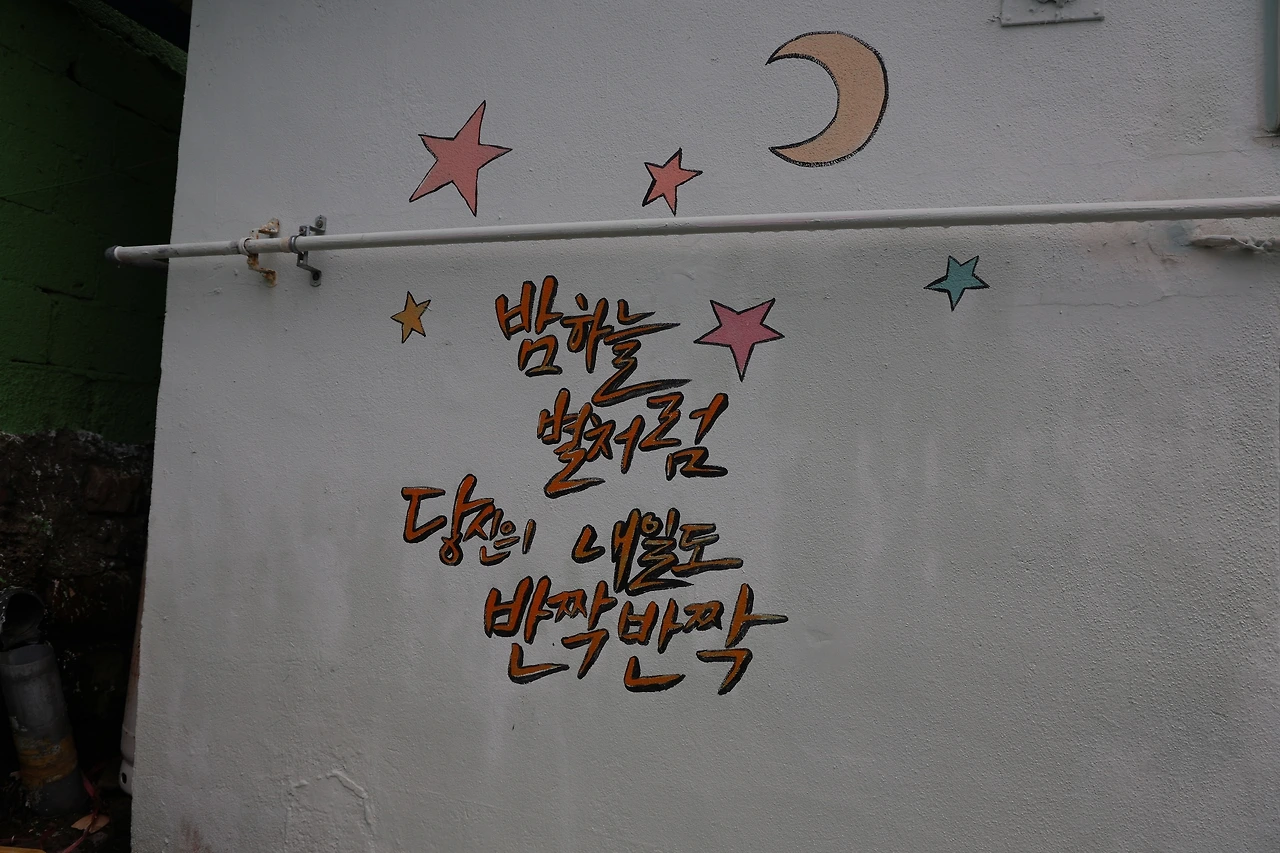 밤하늘
별처럼
당신의 내일도
반짝반짝